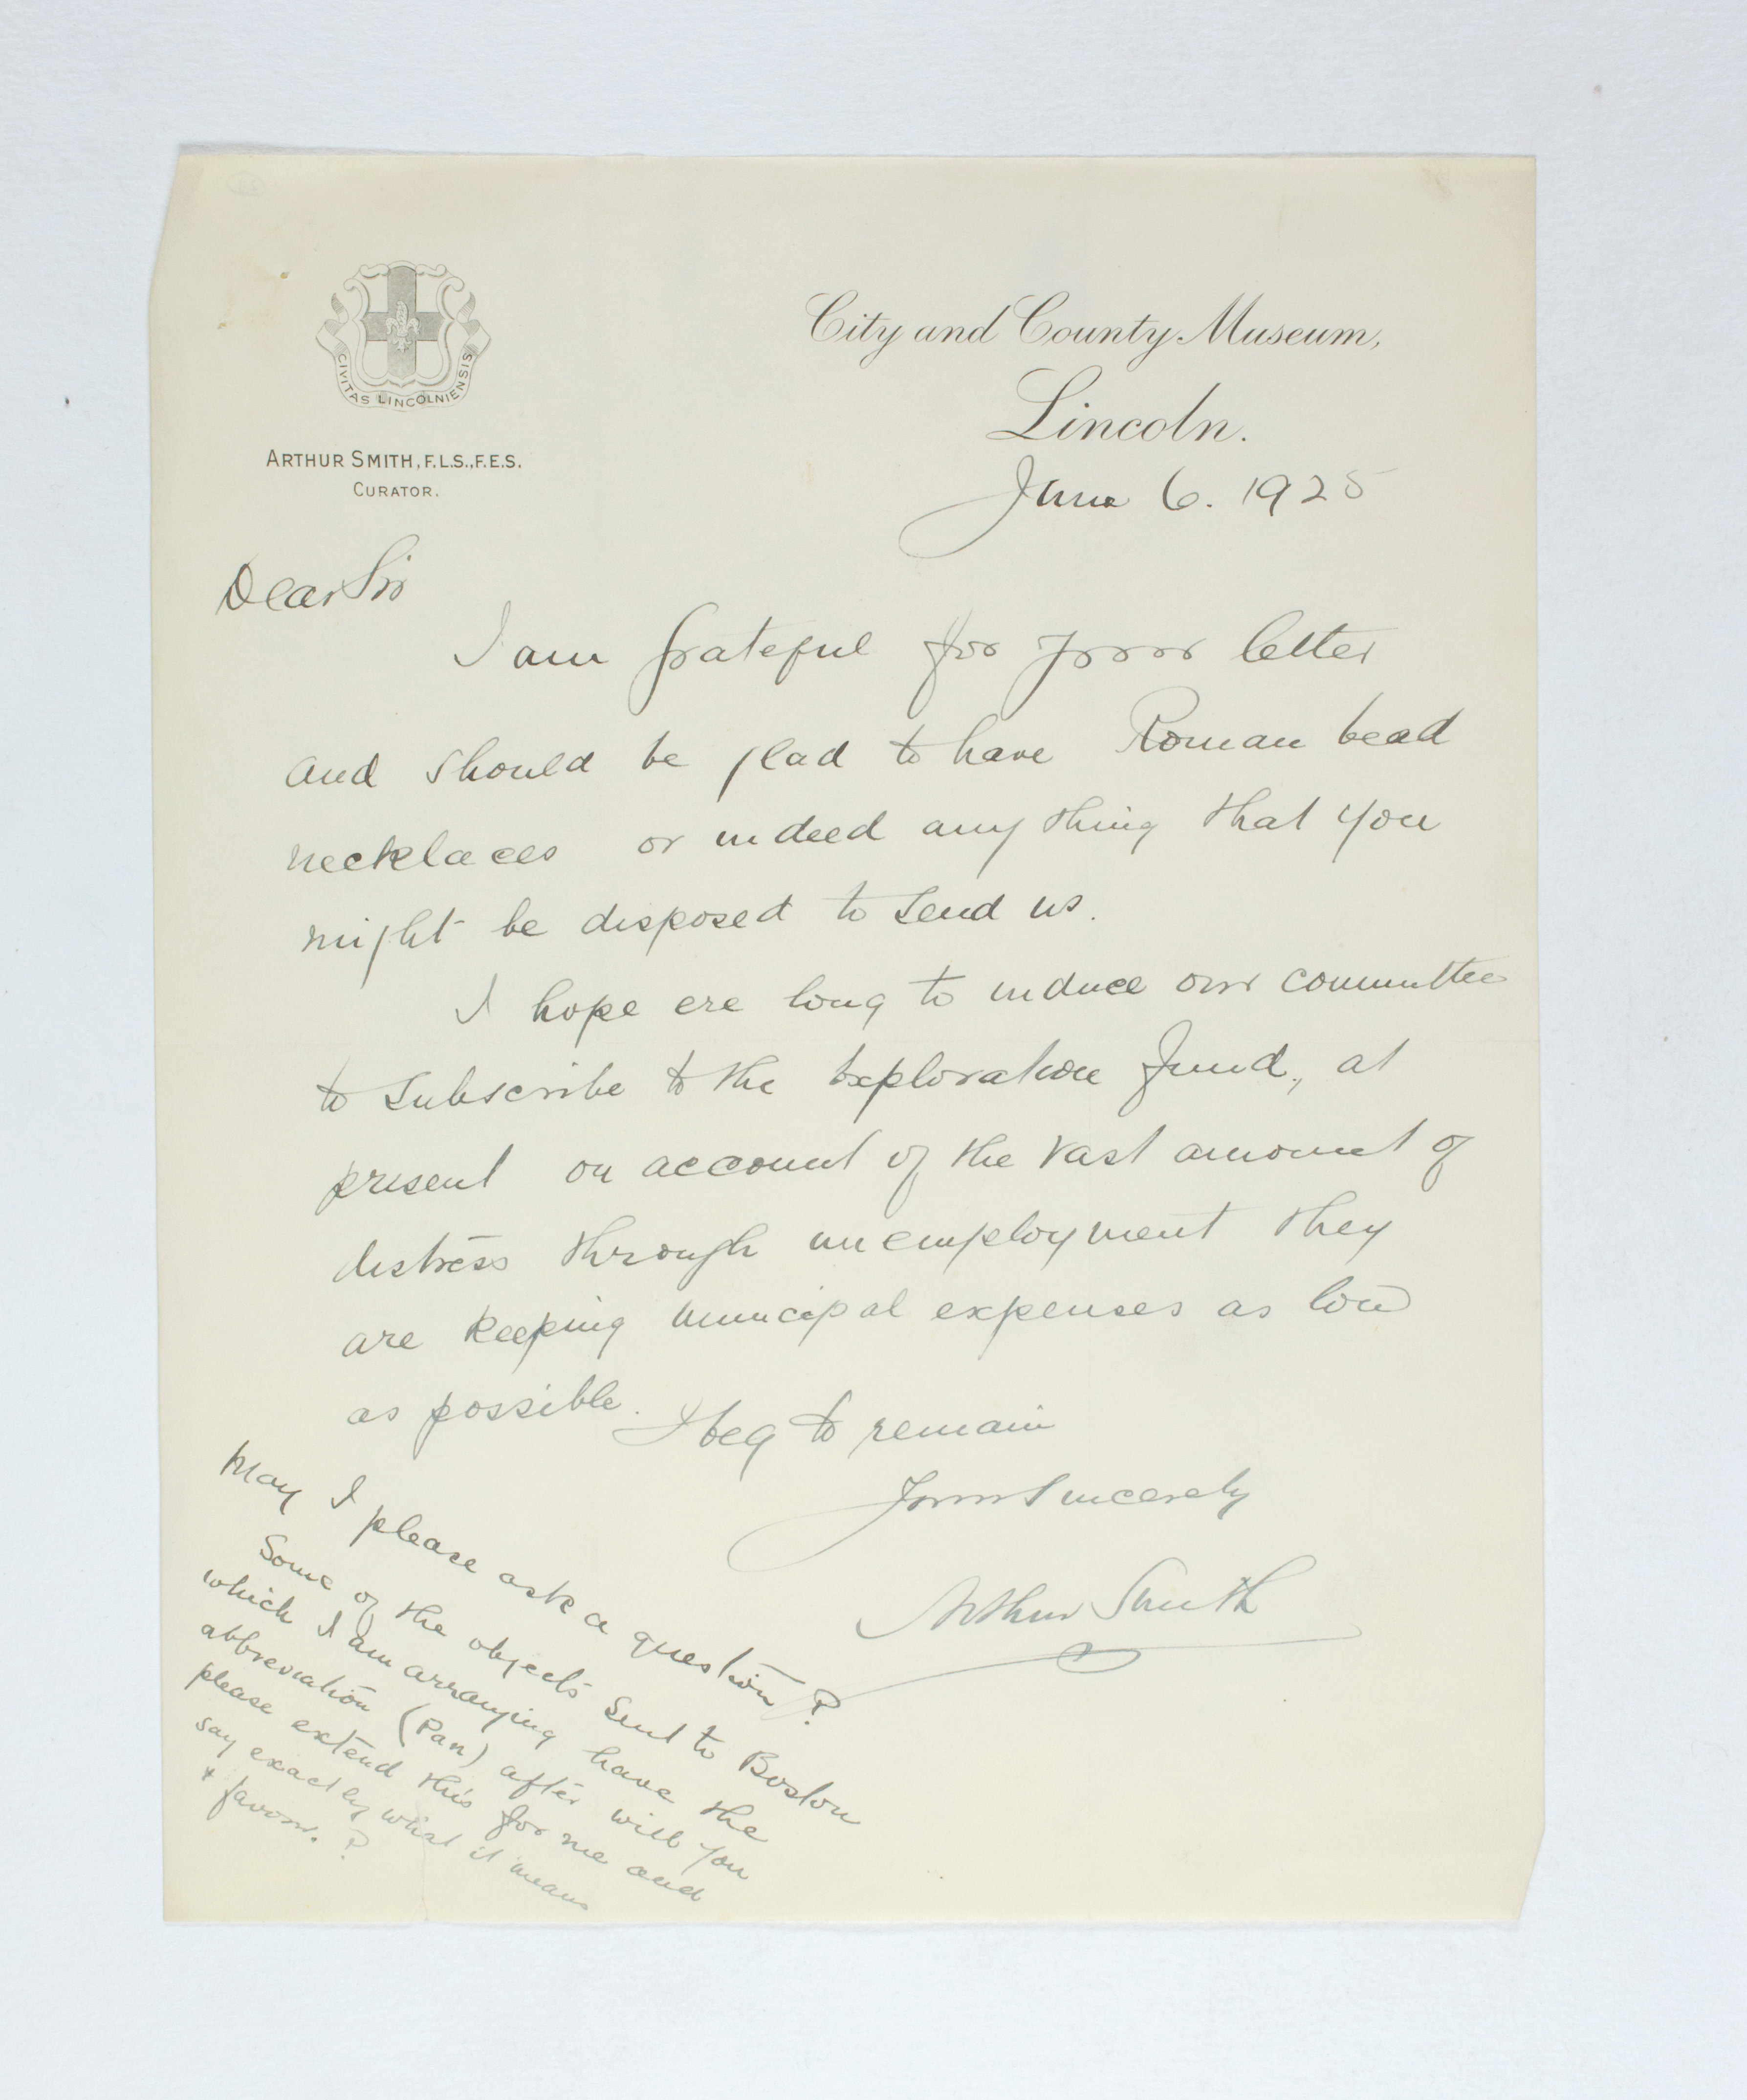 CIVITAS LINCOLNIENSIS
ARTHUR SMITH, F.L.S., F.E.S.
CURATOR.
City and County Museum,
Lincoln.
June 6. 1925
Dear Sir
I am grateful for your letter
and should be glad to have Roman bead
necklaces or indeed any thing that you
might be disposed to send us.
I hope ere long to induce our committee
to subscribe to the Exploration fund, at
present on account of the vast amount of
distress through unemployment they
are keeping municipal expenses as low
as possible.
I beg to remain
Yours sincerely
Arthur Smith
May I please ask a question?
Some of the objects sent to Boston
which I am arranging have the
abbreviation (Pan) after will you
please extend this for me and
say exactly what it means
& favour. ?